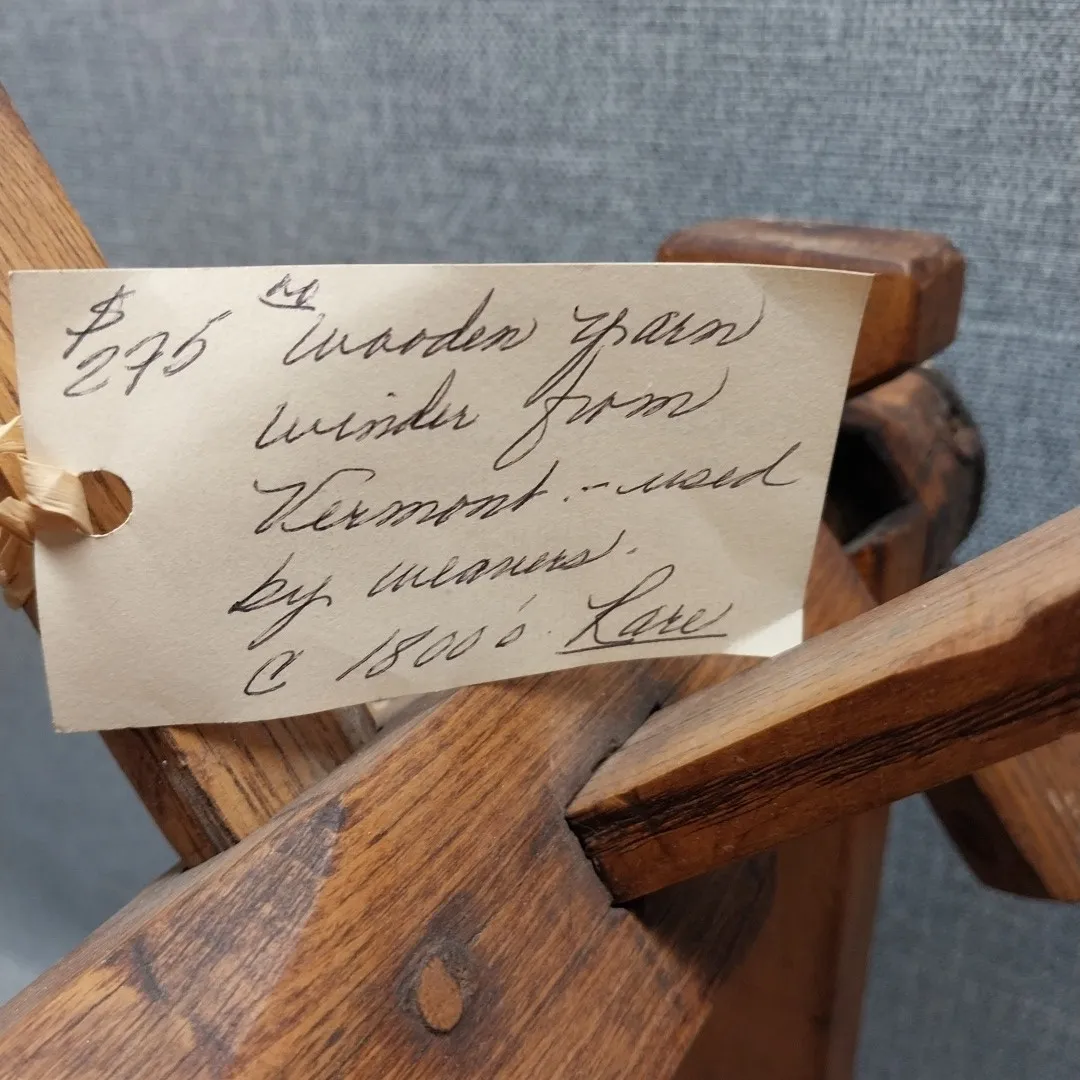 $275 00 Wooden yarn
winder from
Vermont. - used
by weavers.
C 1800's. Rare